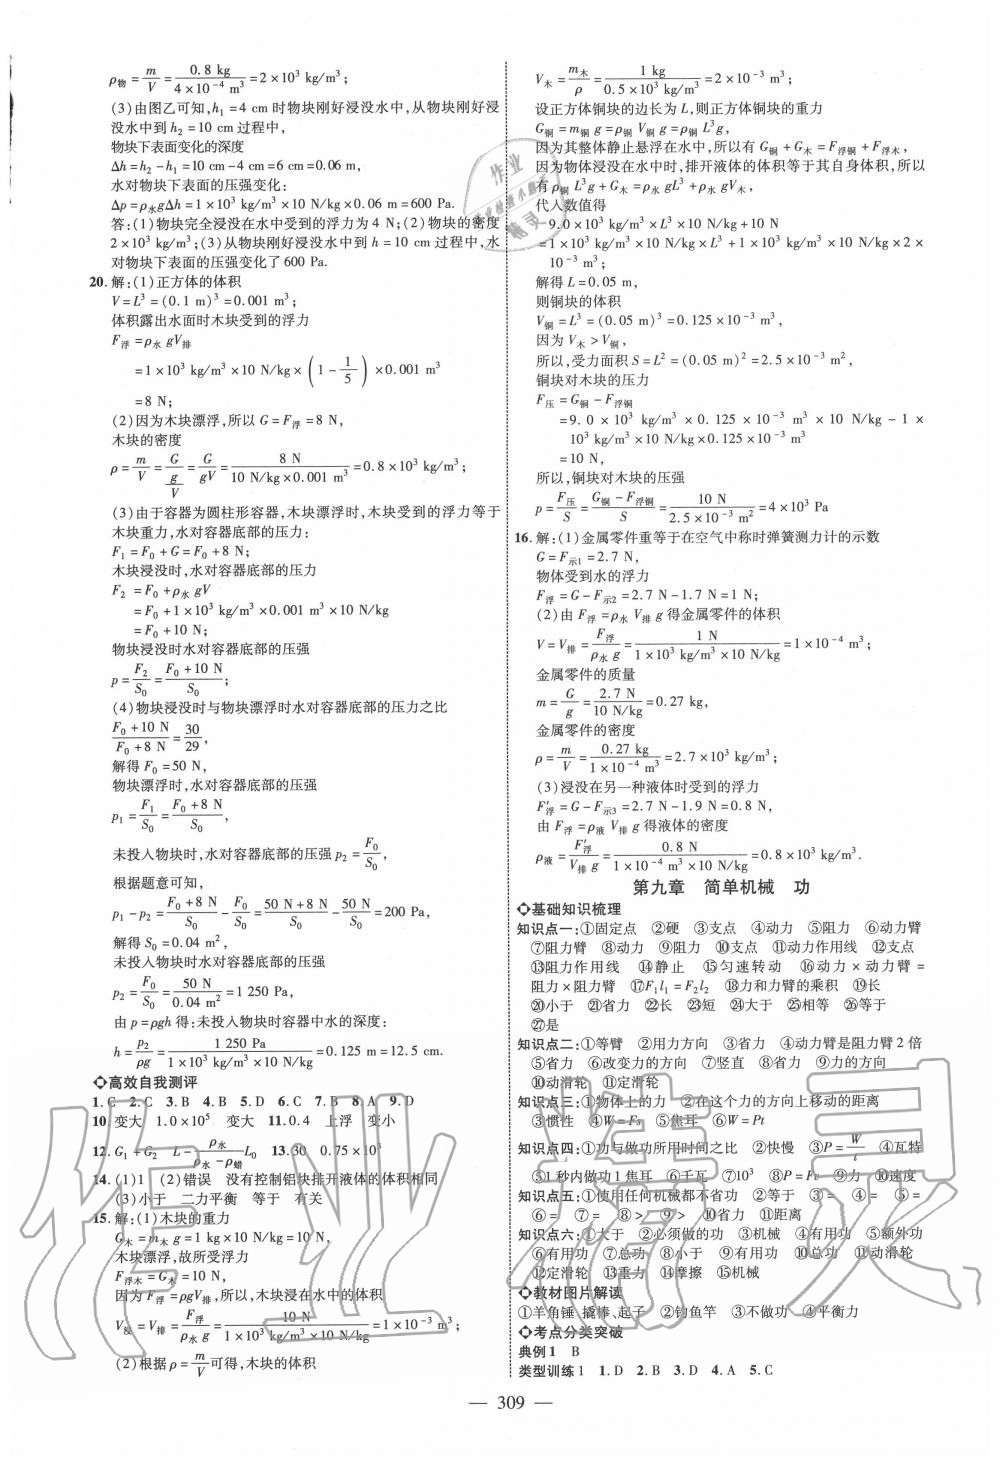 ρ物=m/V=0.8 kg/(4×10⁻⁴ m³)=2×10³ kg/m³;
(3)由图乙可知,h₁=4 cm时物块刚好浸没水中,从物块刚好浸
没水中到h₂=10 cm过程中,
物块下表面变化的深度
Δh=h₂-h₁=10 cm-4 cm=6 cm=0.06 m,
水对物块下表面的压强变化:
Δp=ρ水gΔh=1×10³ kg/m³×10 N/kg×0.06 m=600 Pa.
答:(1)物块完全浸没在水中受到的浮力为4 N;(2)物块的密度
2×10³ kg/m³;(3)从物块刚好浸没水中到h=10 cm过程中,水
对物块下表面的压强变化了600 Pa.
20.解:(1)正方体的体积
V=L³=(0.1 m)³=0.001 m³;
体积露出水面时木块受到的浮力
F浮=ρ水gV排
=1×10³ kg/m³×10 N/kg×(1-1/5)×0.001 m³
=8 N;
(2)因为木块漂浮,所以G=F浮=8 N,
木块的密度
ρ=m/V=(G/g)/V=G/gV=8 N/(10 N/kg×0.001 m³)=0.8×10³ kg/m³;
(3)由于容器为圆柱形容器,木块漂浮时,木块受到的浮力等于
木块重力,水对容器底部的压力:
F₁=F₀+G=F₀+8 N;
木块浸没时,水对容器底部的压力
F₂=F₀+ρ水gV
=F₀+1×10³ kg/m³×0.001 m³×10 N/kg
=F₀+10 N;
物块浸没时水对容器底部的压强
p=F₂/S₀=(F₀+10 N)/S₀;
(4)物块浸没时与物块漂浮时水对容器底部的压力之比
(F₀+10 N)/(F₀+8 N)=30/29,
解得F₀=50 N,
物块漂浮时,水对容器底部的压强
p₁=F₁/S₀=(F₀+8 N)/S₀,
未投入物块时,水对容器底部的压强p₂=F₀/S₀,
根据题意可知,
p₁-p₂=(F₀+8 N)/S₀-F₀/S₀=(50 N+8 N)/S₀-50 N/S₀=200 Pa,
解得S₀=0.04 m²,
未投入物块时水对容器底部的压强
p₂=F₀/S₀=50 N/0.04 m²=1 250 Pa,
由p=ρgh得:未投入物块时容器中水的深度:
h=p₂/ρg=1 250 Pa/(1×10³ kg/m³×10 N/kg)=0.125 m=12.5 cm.
◇高效自我测评
1.C 2.C 3.B 4.B 5.D 6.C 7.B 8.A 9.D
10.变大 1.0×10⁵ 变大 11.0.4 上浮 变小
12.G₁+G₂ L-ρ水/(ρ水-ρ蜡)L₀ 13.30 0.75×10³
14.(1)1 (2)错误 没有控制铝块排开液体的体积相同
(3)小于 二力平衡 等于 有关
15.解:(1)木块的重力
G木=m木g=1 kg×10 N/kg=10 N,
木块漂浮,故所受浮力
F浮木=G木=10 N,
因为F浮=ρgV排,所以,木块浸在水中的体积
V浸=V排=F浮/(ρ水g)=10 N/(1×10³ kg/m³×10 N/kg)=1×10⁻³ m³;
(2)根据ρ=m/V可得,木块的体积
V木=m木/ρ=1 kg/(0.5×10³ kg/m³)=2×10⁻³ m³,
设正方体铜块的边长为L,则正方体铜块的重力
G铜=m铜g=ρ铜V铜g=ρ铜L³g,
因为其整体静止悬浮在水中,所以有G铜+G木=F浮铜+F浮木,
因为物体浸没在水中时,排开液体的体积等于其自身体积,所以
有ρ铜L³g+G木=ρ水gL³+ρ水gV木,
代入数值得
9.0×10³ kg/m³×10 N/kg×L³×10 N/kg+10 N
=1×10³ kg/m³×10 N/kg×L³+1×10³ kg/m³×10 N/kg×2×
10⁻³ m³;
解得L=0.05 m,
则铜块的体积
V铜=L³=(0.05 m)³=0.125×10⁻³ m³,
因为V木>V铜,
所以,受力面积S=L²=(0.05 m)²=2.5×10⁻³ m²,
铜块对木块的压力
F压=G铜-F浮铜
=9.0×10³ kg/m³×0.125×10⁻³ m³×10 N/kg-1×
10³ kg/m³×10 N/kg×0.125×10⁻³ m³
=10 N,
所以,铜块对木块的压强
p=F压/S=(G铜-F浮铜)/S=10 N/(2.5×10⁻³ m²)=4×10³ Pa
16.解:(1)金属零件重等于在空气中称时弹簧测力计的示数
G=F示1=2.7 N,
物体受到水的浮力
F浮=G-F示2=2.7 N-1.7 N=1 N;
(2)由F浮=ρ水V排g得金属零件的体积
V=V排=F浮/(ρ水g)=1 N/(1×10³ kg/m³×10 N/kg)=1×10⁻⁴ m³;
金属零件的质量
m=G/g=2.7 N/(10 N/kg)=0.27 kg,
金属零件的密度
ρ=m/V=0.27 kg/(1×10⁻⁴ m³)=2.7×10³ kg/m³;
(3)浸没在另一种液体时受到的浮力
F′浮=G-F示3=2.7 N-1.9 N=0.8 N,
由F浮=ρ液V排g得液体的密度
ρ液=F′浮/(V排g)=0.8 N/(1×10⁻⁴ m³×10 N/kg)=0.8×10³ kg/m³.
第九章 简单机械 功
◇基础知识梳理
知识点一:①固定点 ②硬 ③支点 ④动力 ⑤阻力 ⑥动力臂
⑦阻力臂 ⑧动力 ⑨阻力 ⑩支点 ⑪动力作用线 ⑫支点
⑬阻力作用线 ⑭静止 ⑮匀速转动 ⑯动力×动力臂=
阻力×阻力臂 ⑰F₁l₁=F₂l₂ ⑱力和力臂的乘积 ⑲长
⑳小于 ㉑省力 ㉒长 ㉓短 ㉔大于 ㉕相等 ㉖等于
㉗是
知识点二:①等臂 ②用力方向 ③省力 ④动力臂是阻力臂2倍
⑤省力 ⑥改变力的方向 ⑦竖直 ⑧省力 ⑨力的方向
⑩动滑轮 ⑪定滑轮
知识点三:①物体上的力 ②在这个力的方向上移动的距离
③惯性 ④W=Fs ⑤焦耳 ⑥W=Pt
知识点四:①功与做功所用时间之比 ②快慢 ③P=W/t ④瓦特
⑤1秒内做功1焦耳 ⑥千瓦 ⑦10³ ⑧P=Fv ⑨力 ⑩速度
知识点五:①使用任何机械都不省功 ②等于 ③= ④= ⑤=
⑥= ⑦= ⑧> ⑨> ⑩省力 ⑪距离
知识点六:①大于 ②必须做的功 ③机械 ④有用功 ⑤额外功
⑥有用功 ⑦总功 ⑧小于 ⑨有用功 ⑩总功 ⑪动滑轮
⑫定滑轮 ⑬重力 ⑭摩擦 ⑮机械
◇教材图片解读
①羊角锤、撬棒、起子 ②钓鱼竿 ③不做功 ④平衡力
◇考点分类突破
典例1 B
类型训练1 1.D 2.B 3.D 4.A 5.C
— 309 —
作业精灵